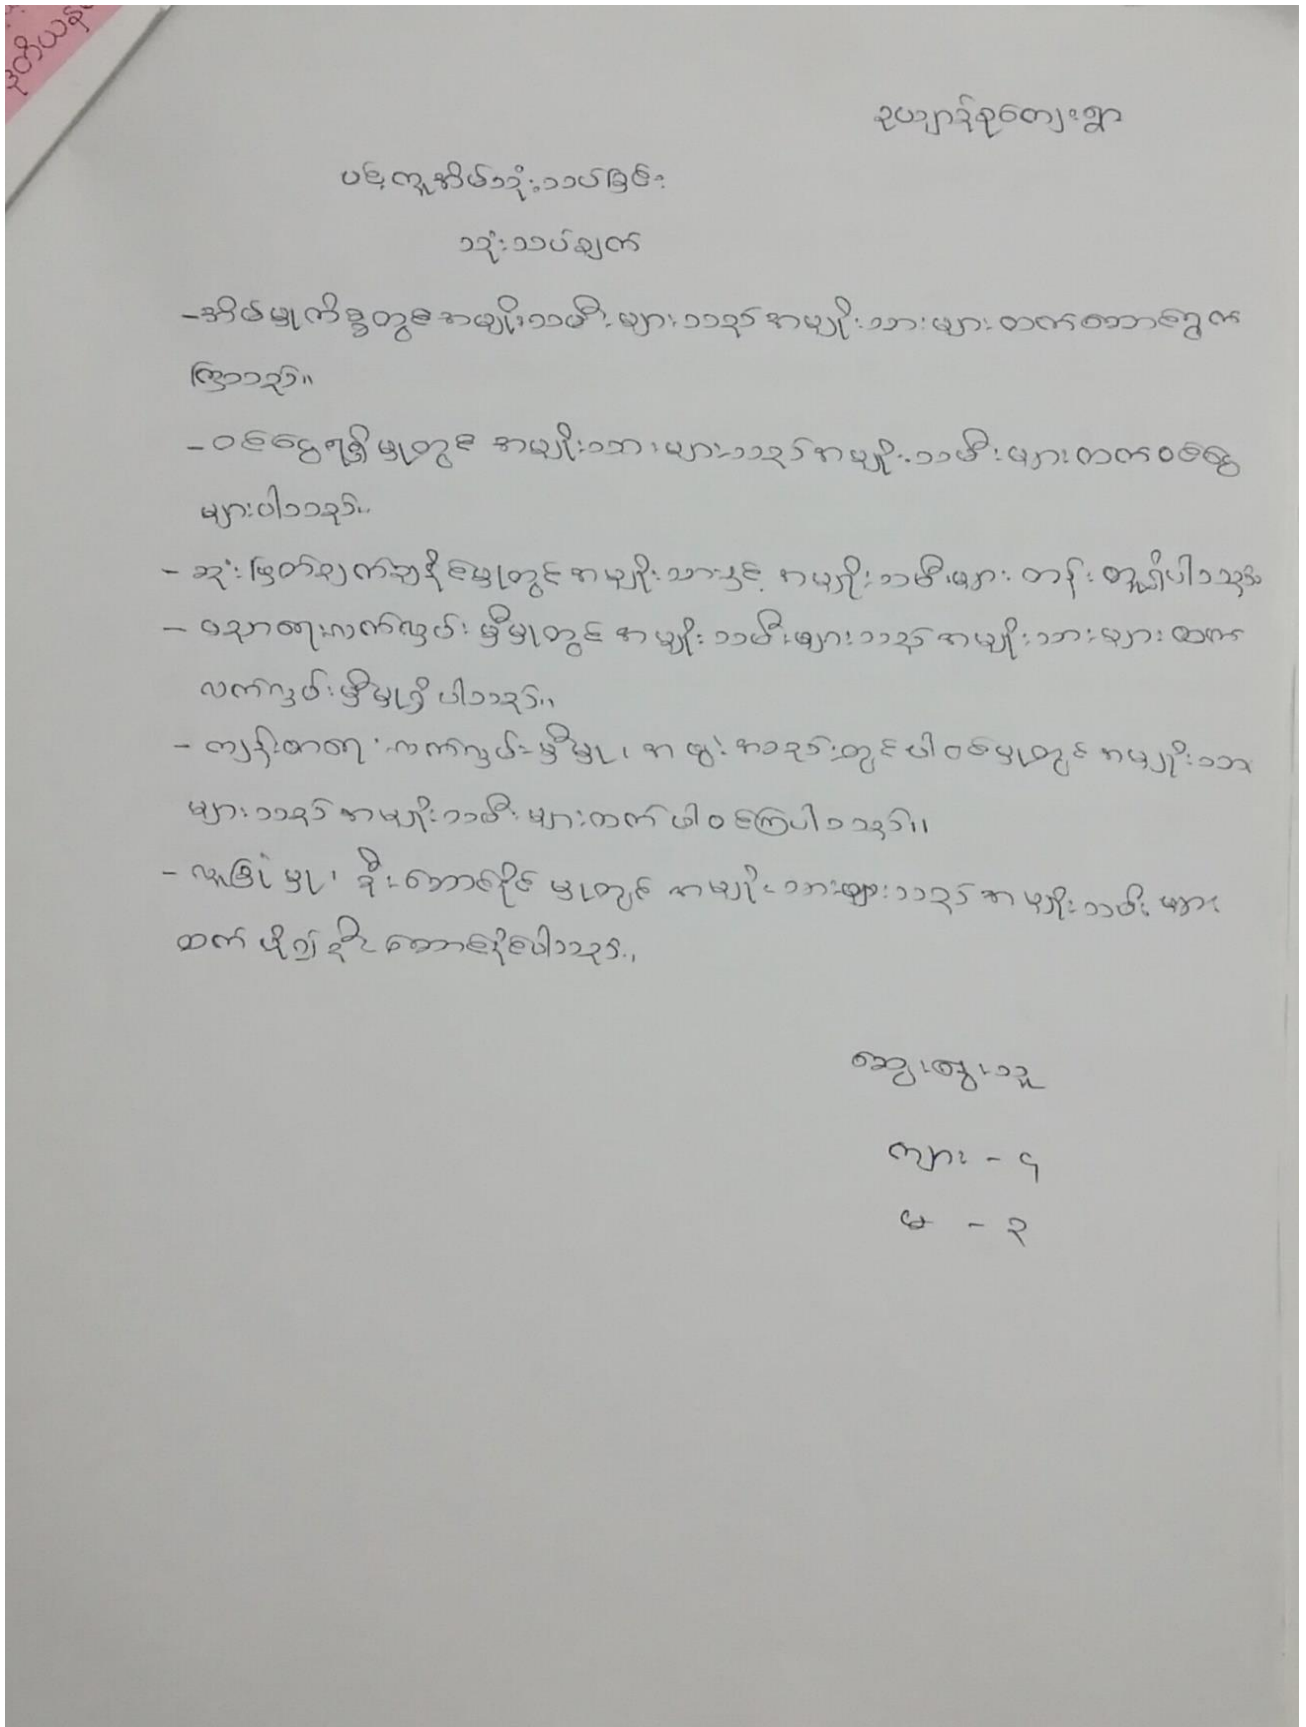 ဒုတိယန
ဥယျာဉ်စုကျေးရွာ
ပင့်ကူအိမ်သုံးသပ်ခြင်း
သုံးသပ်ချက်
-အိမ်မှုကိစ္စတွင် အမျိုးသမီးများသည် အမျိုးသားများထက်ဆောင်ရွက်
ကြသည်။
-ဝင်ငွေရရှိမှုတွင် အမျိုးသားများသည် အမျိုးသမီးများထက်ဝင်ငွေ
များပါသည်။
- ဆုံးဖြတ်ချက်ချနိုင်မှုတွင် အမျိုးသားနှင့် အမျိုးသမီးများ တန်းတူရှိပါသည်။
- ပညာရေးလက်လှမ်းမှီမှုတွင် အမျိုးသမီးများသည် အမျိုးသားများထက်
လက်လှမ်းမှီမှုရှိပါသည်။
- ကျန်းမာရေးလက်လှမ်းမှီမှု၊ အဖွဲ့အစည်းတွင်ပါဝင်မှုတွင် အမျိုးသား
များသည် အမျိုးသမီးများထက် ပါဝင်ကြပါသည်။
- လူခြုံမှု၊ ဦးဆောင်နိုင်မှုတွင် အမျိုးသားများသည် အမျိုးသမီးများ
ထက် ပို၍ဦးဆောင်နိုင်ပါသည်။
ဆွေးနွေးသူ
ကျား - ၄
မ - ၃